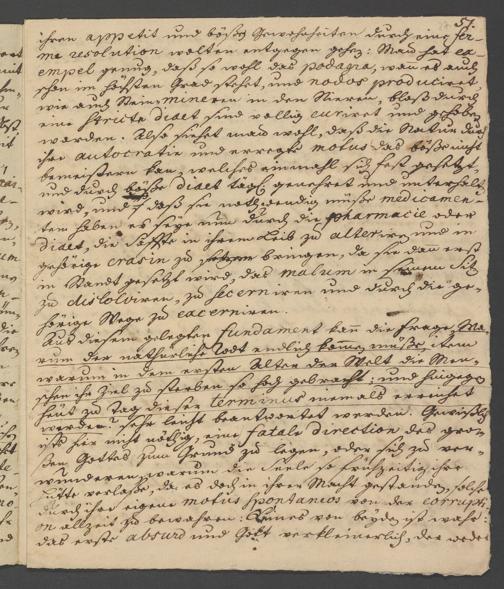 57.
ihren appetit und böße Gewohnheiten durch eine fer-
me resolution wolten entgegen gehen: Man hat ex-
empel genug, daß so wohl das podagra, wan es auch
schon im höchsten Grad stehet, und nodos produciret,
wie auch Stein, in den Nieren, bloß durch
eine stricte diaet sind völlig curiret und gehoben
worden. Also siehet man wohl, daß die Natur durch
ihre autocratie und erregte motus das böße nicht
bemeistern kan, welches einmahl sich fest gesetzt,
und durch böße diaet tägl. genehret und unterhalten
wird, und daß sie nothwendig müße medicamen-
ten haben es seye nun durch die pharmacie oder
diaet, die Säffte in ihrem Leib zu alteriren und in
gehörige crasin zu bringen, da sie dan erst
in Standt gesetzt wird, das malum in seinem Sitz
zu disolviren, zu secerniren und durch die ge-
hörige Wege zu excerniren.
Auß diesem gelegten fundament kan die Frage Wa-
rum der natürliche Todt endlich kommen müße, item
warum in dem ersten Alter der Welt die Men-
schen ihr Ziel zu sterben so hoch gebracht; und hingegen
heut zu Tag dieser terminus niemals erreichet
werde? sehr leicht beantwortet werden. Gewißlich
ist hier nicht nöthig, eine fatale direction des gros-
sen Gottes zum Grund zu legen, oder sich zu ver-
wunderen, warum die Seele so frühzeitig ihre
Hütte verlaße, da es doch in ihrer Macht gestanden, solche
durch ihre eigene motus spontaneos von der corrupti-
on allzeit zu bewahren: Keines von beyden ist wahr:
das erste absurd und Gott verkleinerlich, der weder